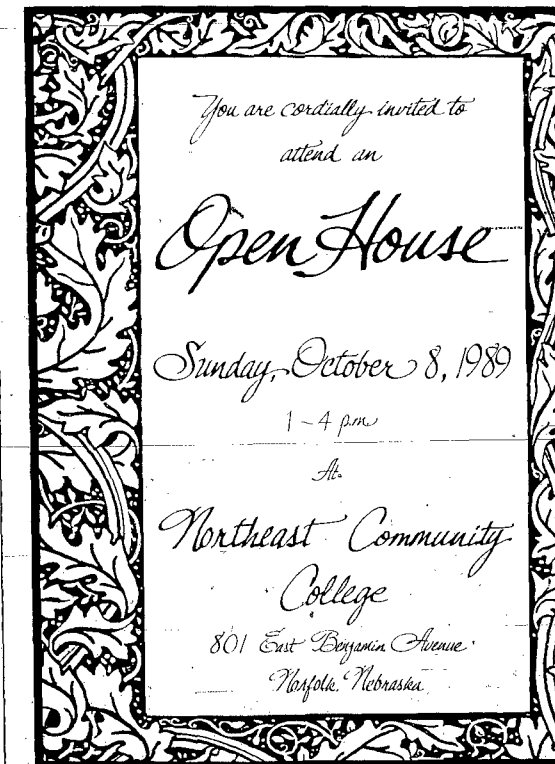 You are cordially invited to
attend an
Open House
Sunday, October 8, 1989
1 - 4 p.m.
At
Northeast Community
College
801 East Benjamin Avenue
Norfolk, Nebraska